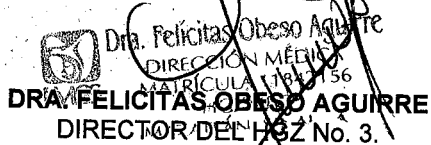 Dra. Felícitas Obeso Aguirre
DIRECCIÓN MÉDICA
MATRÍCULA
DRA. FELICITAS OBESO AGUIRRE
DIRECTOR DEL HGZ No. 3.